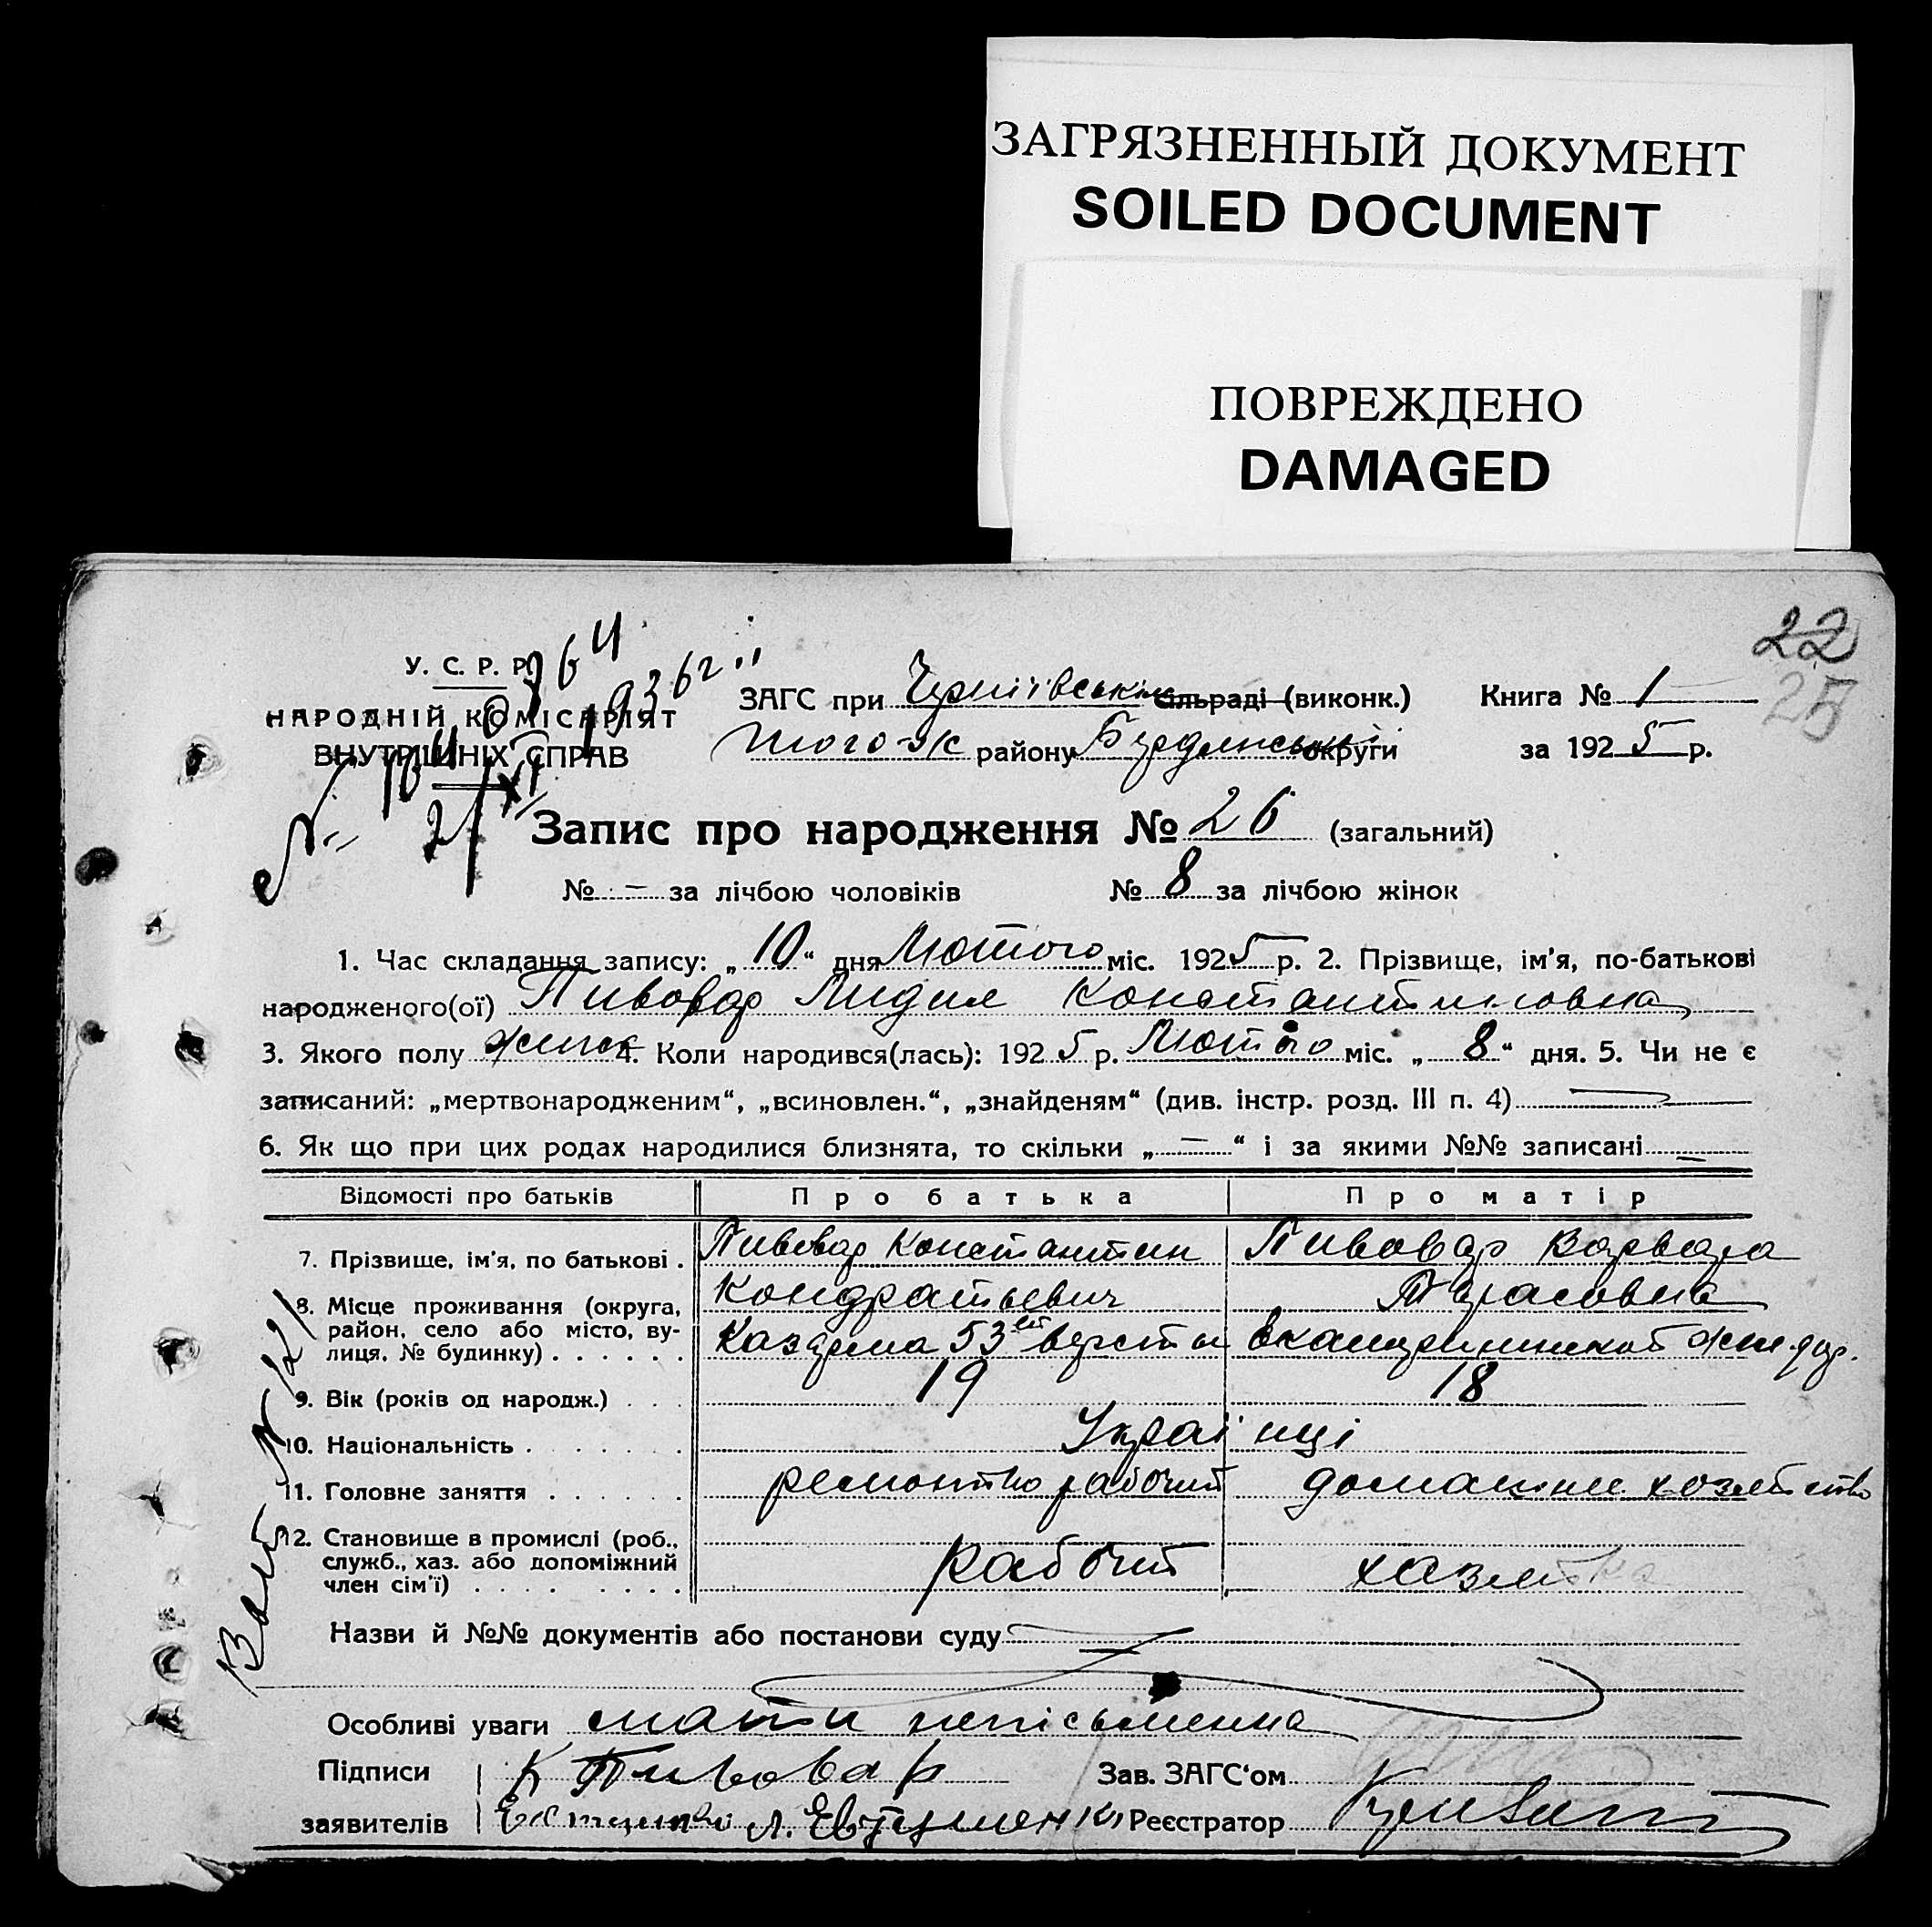 ЗАГРЯЗНЕННЫЙ ДОКУМЕНТ
SOILED DOCUMENT
ПОВРЕЖДЕНО
DAMAGED
22
25
У. С. Р. Р.
НАРОДНІЙ КОМІСАРІЯТ
ВНУТРІШНІХ СПРАВ
ЗАГС при Чернігівськім сільраді (виконк.) Книга № 1
того-ж району Бердянської округи за 1925 р.
Запис про народження № 26 (загальний)
№ — за лічбою чоловіків № 8 за лічбою жінок
1. Час складання запису: „10“ дня Лютого міс. 1925 р. 2. Прізвище, ім’я, по-батькові
народженого(ої) Пивовар Лидия Константиновна
3. Якого полу жіноч 4. Коли народився(лась): 1925 р. Лютого міс. „8“ дня. 5. Чи не є
записаний: „мертвонародженим“, „всиновлен.“, „знайденям“ (див. інстр. розд. III п. 4) —
6. Як що при цих родах народилися близнята, то скільки „—“ і за якими №№ записані —
Відомості про батьків Про батька Про матір
7. Прізвище, ім’я, по батькові . Пивовар Константин Пивовар Варвара
Кондратьевич Тарасовна
8. Місце проживання (округа, район, село або місто, вулиця, № будинку) Казарма 53 ей версты Екатерининской жел. дор.
9. Вік (років од народж.) 19 18
10. Національність Українці
11. Головне заняття ремонтно рабочий домашнее хозяйство
12. Становище в промислі (роб., служб., хаз. або допоміжний член сім’ї) рабочий хазяйка
Назви й №№ документів або постанови суду
Особливі уваги мати неписьменна
Підписи К Пивовар Зав. ЗАГС‘ом
заявителів Л. Евтушенко Реєстратор